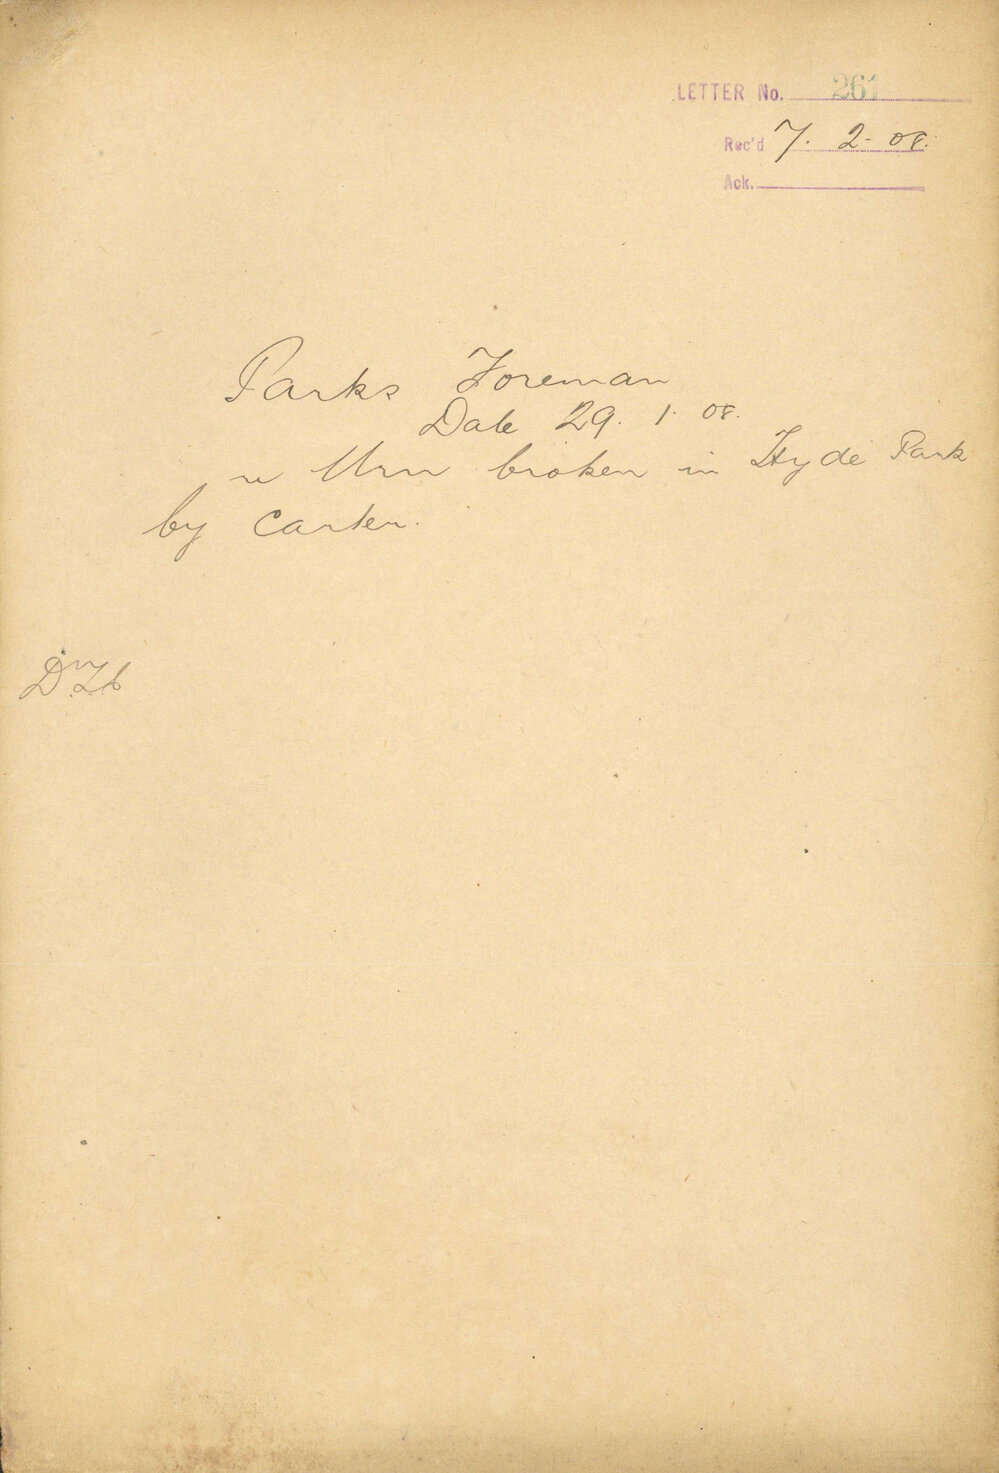 LETTER No. 261
Rec'd 7. 2. 08.
Ack.
Parks Foreman
Date 29. 1. 08.
re Urn broken in Hyde Park
by Carter.